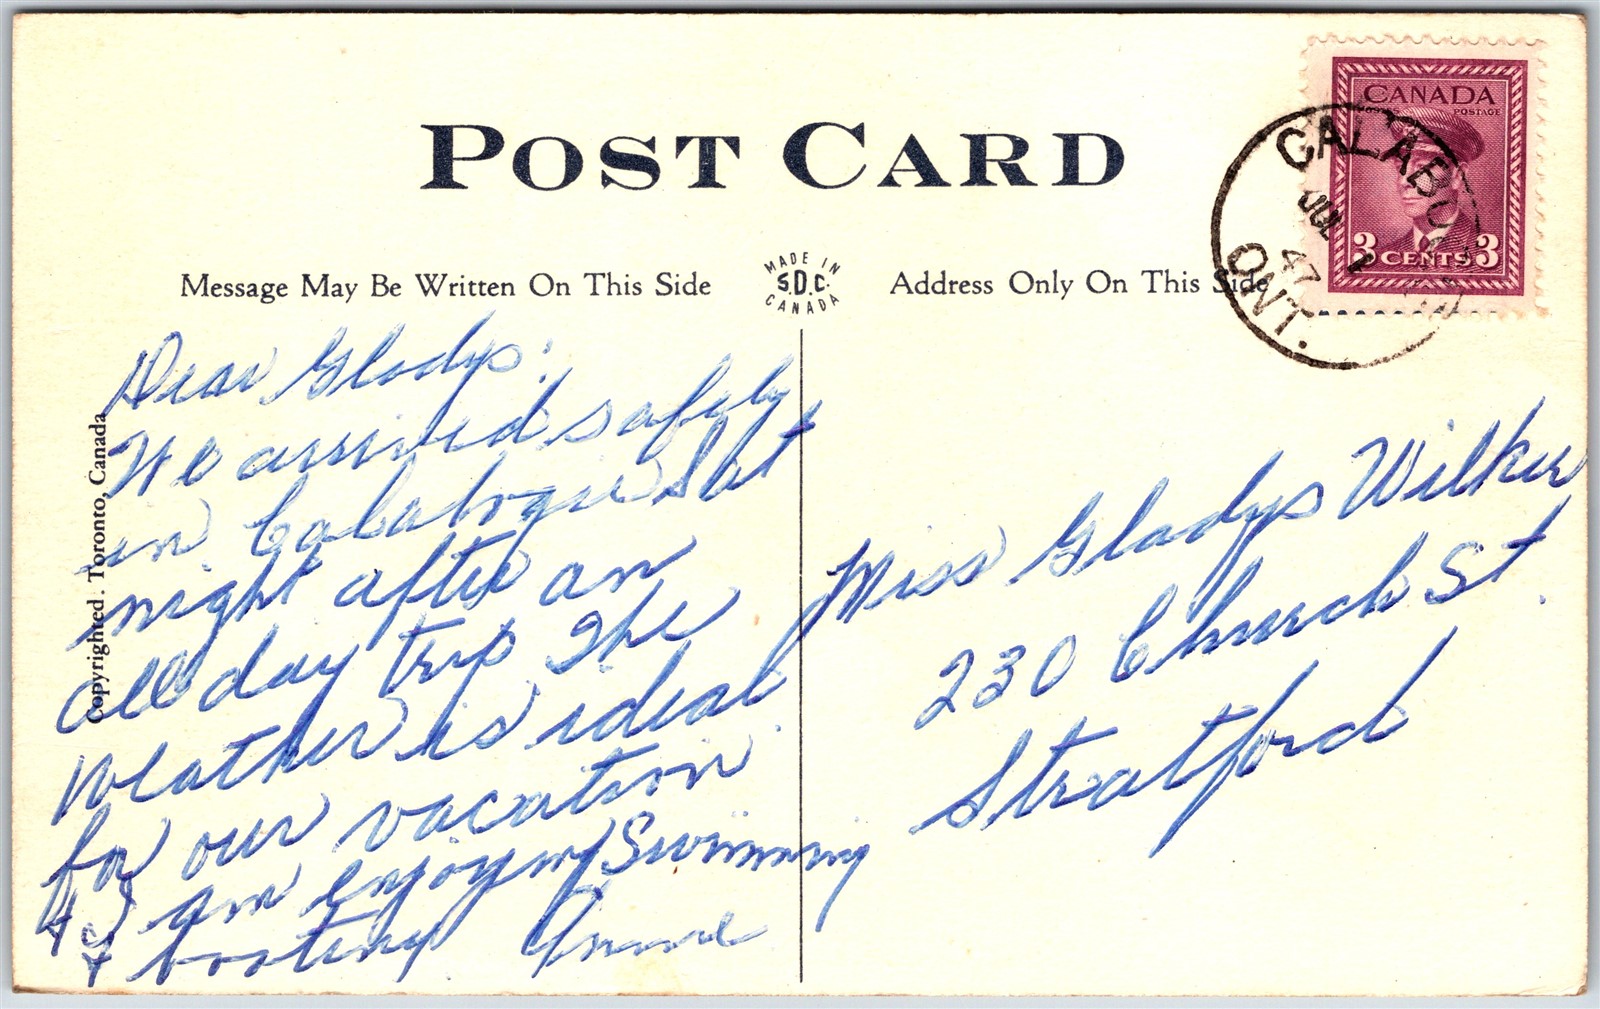 POST CARD
Message May Be Written On This Side
MADE IN
S.D.C.
CANADA
Address Only On This Side
CANADA
POSTAGE
3 CENTS 3
CALABOGIE
JUL
47
ONT.
Copyrighted. Toronto, Canada
Dear Gladys:
We arrived safely
in Calabogie Sat
night after an
all day trip The
weather is ideal
for our vacation
& I am enjoying Swimming
& boating
Miss Gladys Wilker
230 Church St.
Stratford